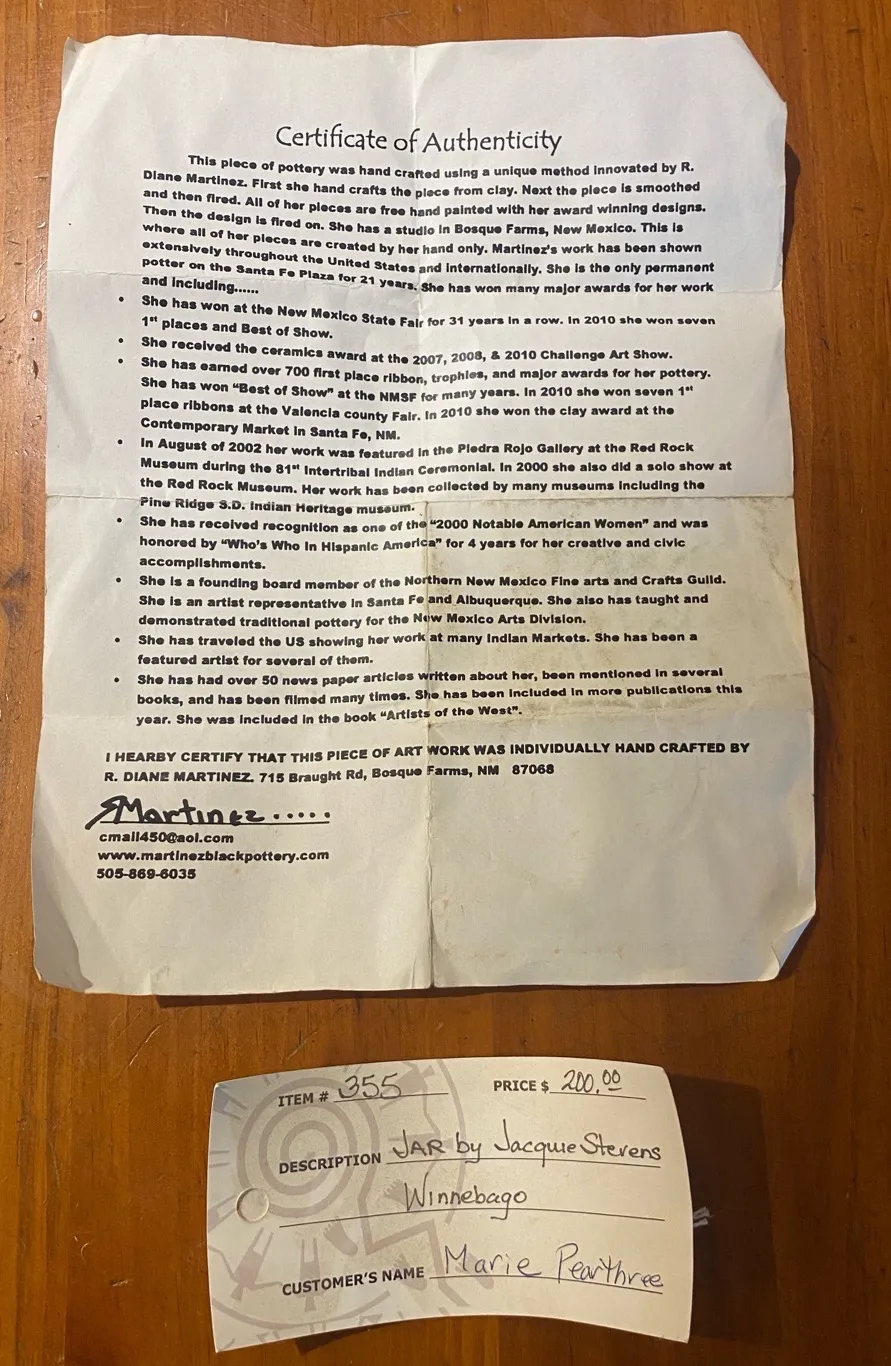 Certificate of Authenticity
This piece of pottery was hand crafted using a unique method innovated by R.
Diane Martinez. First she hand crafts the piece from clay. Next the piece is smoothed
and then fired. All of her pieces are free hand painted with her award winning designs.
Then the design is fired on. She has a studio in Bosque Farms, New Mexico. This is
where all of her pieces are created by her hand only. Martinez's work has been shown
extensively throughout the United States and internationally. She is the only permanent
potter on the Santa Fe Plaza for 21 years. She has won many major awards for her work
and including......
• She has won at the New Mexico State Fair for 31 years in a row. In 2010 she won seven
1st places and Best of Show.
• She received the ceramics award at the 2007, 2008, & 2010 Challenge Art Show.
• She has earned over 700 first place ribbon, trophies, and major awards for her pottery.
She has won "Best of Show" at the NMSF for many years. In 2010 she won seven 1st
place ribbons at the Valencia county Fair. In 2010 she won the clay award at the
Contemporary Market in Santa Fe, NM.
• In August of 2002 her work was featured in the Piedra Rojo Gallery at the Red Rock
Museum during the 81st Intertribal Indian Ceremonial. In 2000 she also did a solo show at
the Red Rock Museum. Her work has been collected by many museums including the
Pine Ridge S.D. Indian Heritage museum.
• She has received recognition as one of the "2000 Notable American Women" and was
honored by "Who's Who in Hispanic America" for 4 years for her creative and civic
accomplishments.
• She is a founding board member of the Northern New Mexico Fine arts and Crafts Guild.
She is an artist representative in Santa Fe and Albuquerque. She also has taught and
demonstrated traditional pottery for the New Mexico Arts Division.
• She has traveled the US showing her work at many Indian Markets. She has been a
featured artist for several of them.
• She has had over 50 news paper articles written about her, been mentioned in several
books, and has been filmed many times. She has been included in more publications this
year. She was included in the book "Artists of the West".
I HEARBY CERTIFY THAT THIS PIECE OF ART WORK WAS INDIVIDUALLY HAND CRAFTED BY
R. DIANE MARTINEZ. 715 Braught Rd, Bosque Farms, NM 87068
RMartinez.....
cmail450@aol.com
www.martinezblackpottery.com
505-869-6035
ITEM # 355 PRICE $ 200.00
DESCRIPTION JAR by Jacquie Stevens
Winnebago
CUSTOMER'S NAME Marie Pearthree